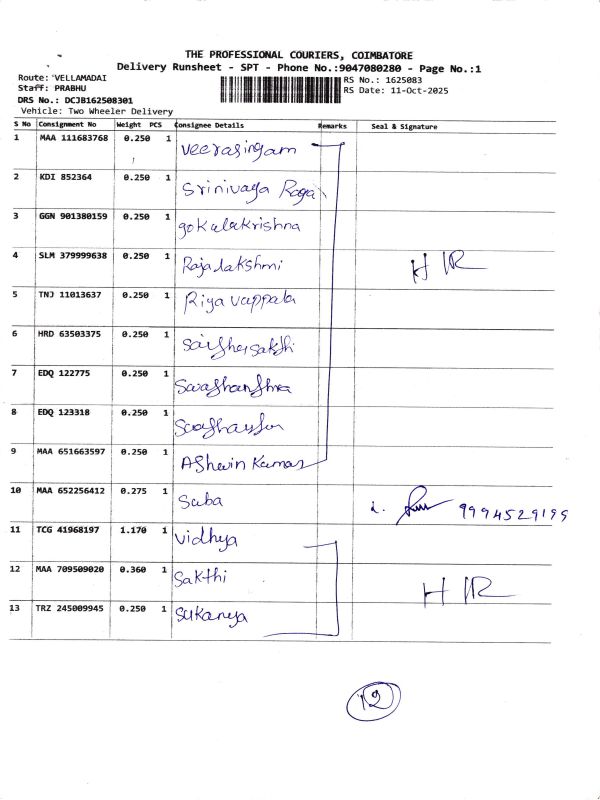 THE PROFESSIONAL COURIERS, COIMBATORE
Delivery Runsheet - SPT - Phone No.:9047080280 - Page No.:1
Route: VELLAMADAI
Staff: PRABHU
DRS No.: DCJB162508301
Vehicle: Two Wheeler Delivery
RS No.: 1625083
RS Date: 11-Oct-2025
S No Consignment No Weight PCS Consignee Details Remarks Seal & Signature
1 MAA 111683768 0.250 1 Veerasingam
2 KDI 852364 0.250 1 Srinivaga Raga
3 GGN 901380159 0.250 1 gokulakrishna
4 SLM 379999638 0.250 1 Rajalakshmi HR
5 TNJ 11013637 0.250 1 Riya vappala
6 HRD 63503375 0.250 1
7 EDQ 122775 0.250 1
8 EDQ 123318 0.250 1
9 MAA 651663597 0.250 1 Ashwin Kumar
10 MAA 652256412 0.275 1 Suba 9994529199
11 TCG 41968197 1.170 1 Vidhya
12 MAA 709509020 0.360 1 Sakthi HR
13 TRZ 245009945 0.250 1 Sukanya
12